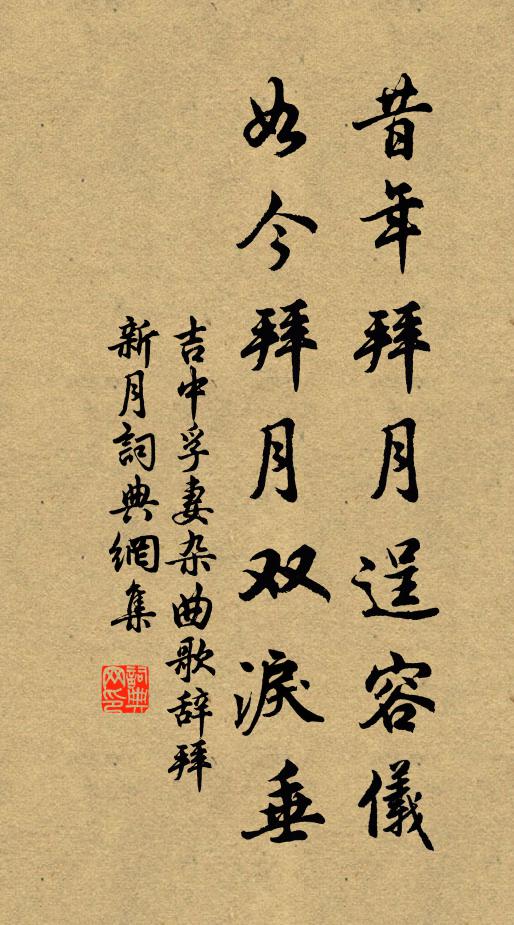 昔年拜月逞容儀
如今拜月双淚垂
吉中孚妻杂曲歌辞拜
新月詞典網集
詞典网印